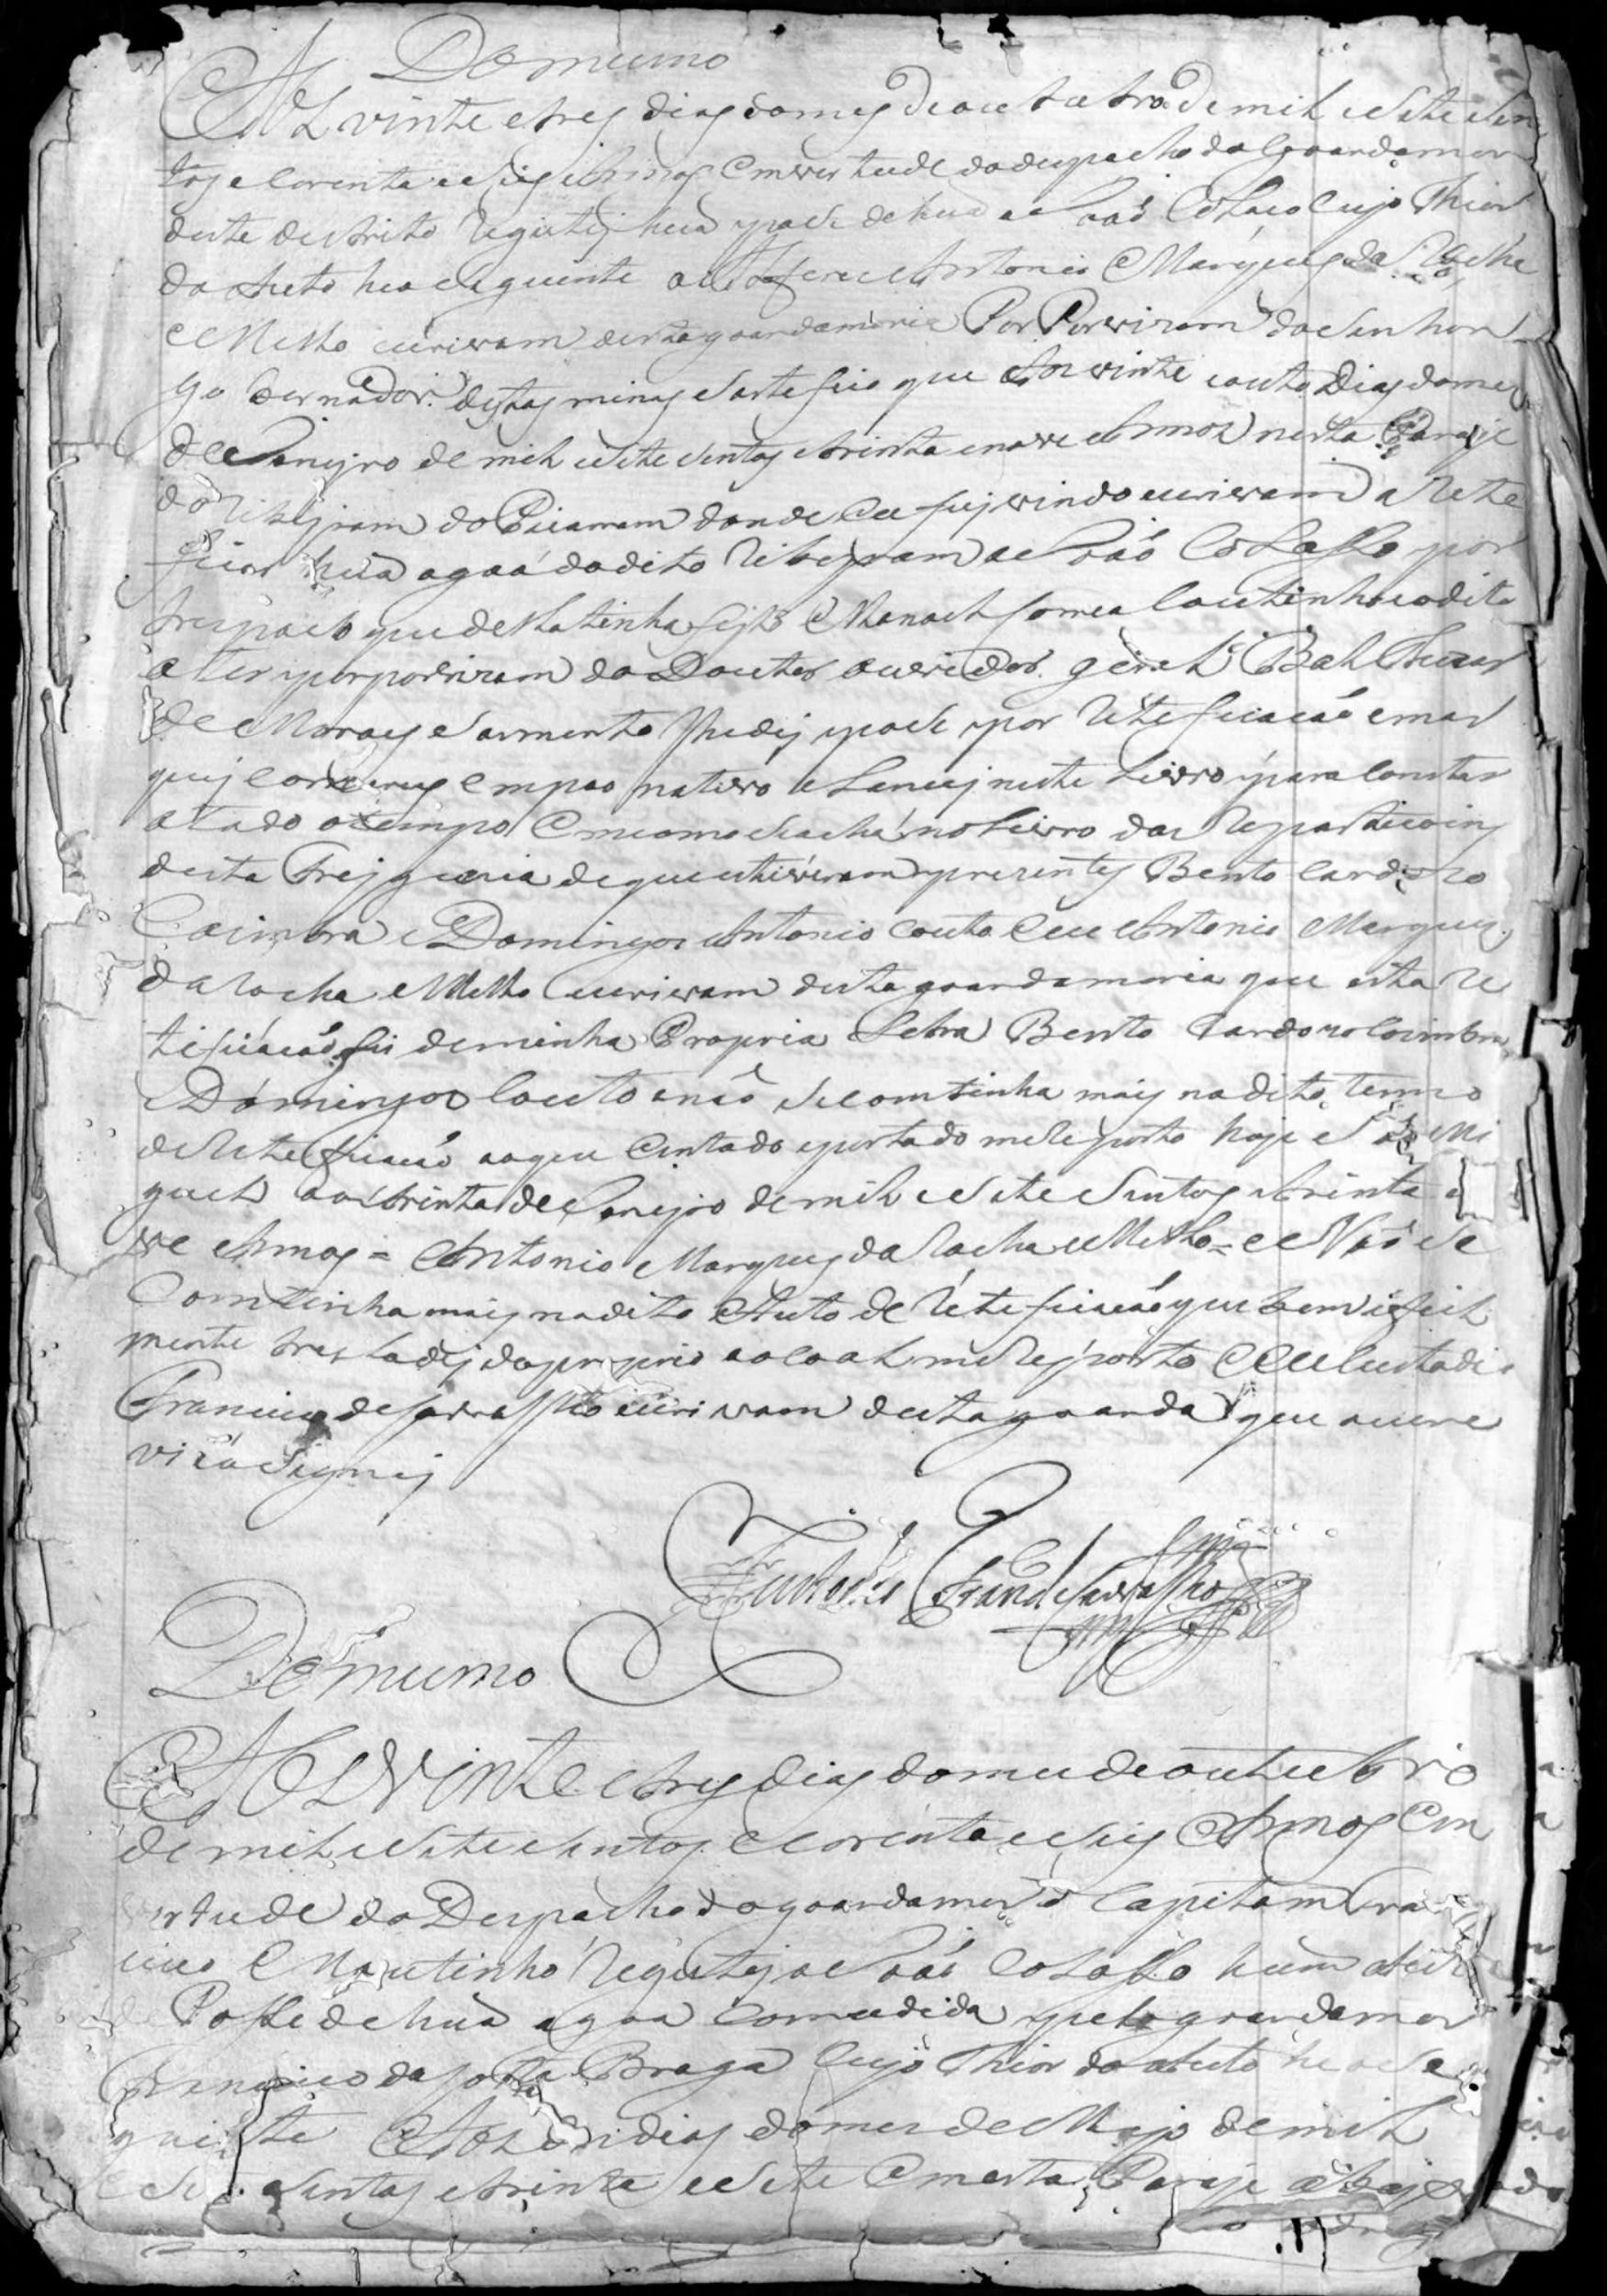 Do mesmo
Aos vinte e tres dias do mes de outubro de mil e sete sen
tos e corenta e seis Annos em vertude do despacho do goardamor
deste destrito Registej hua pose de hua a João Colaço cujo Thior
do Auto he o seguinte Antonio Marques da Rocha
e Mello escrivam desta goardamoria Por Porvizam do Senhor
Go vernador destas minas sertefico que Aos vinte e outo Dias do mes
de Janejro de mil e sete sentos e trinta e nove Annos nesta Paraje
do Ribejram do donde eu fuj vindo escrivam a Rete
ficar hua agoa do dito Ribejram a João Colasso por
trespaso que della tinha fejto Manoel Correa Coutinho e o dito
a ter por porvizam do Doutor ouvidor geral Balthezar
de Moraes Sarmento lhe dej pose por Reteficacaó e mar
quej em pao nativo e Lancej neste Livro para constar
a todo o tempo Livro das Reparticoins
desta Frejguezia de que estiveram prezentes Bento Cardozo
Coimbra e Domingos Antonio Couto e eu Antonio Marques
da Rocha e Mello escrivam desta goardamoria que esta Re
tificacaó fis de minha Propria Letra Bento Cardozo Coimbra
Domingos Couto e não se comtinha mais no dito termo
de Reteficacaó ao que me Reporto hoje São Mi
guel aos trinta de Janejro de mil e sete sentos e trinta e
ve Annos = Antonio Marques da Rocha e Mello = e Não se
Comtinha mais no dito Auto de Reteficacaó que bem e fiel
mente tresladej do proprio ao coal me Reporto e eu Custodio
Francisco de Carvalho escrivam desta goarda que o escre
vi e asignej
Custodio Franco de Carvalho
Do mesmo
Aos vinte e tres dias do mes de outubro
de mil e sete sentos e corenta e seis Annos em
vertude do Despacho do goardamor o Capitam Fran
cisco Moutinho Registej a João Colasso hum Auto
de Posse de hua agoa comcedida pelo goardamor
Francisco da Costa Braga cujo Thior do Auto he o Se
guinte Aos dias do mes de Majo de mil
e sete sentos e trinta e sete em esta Paraje